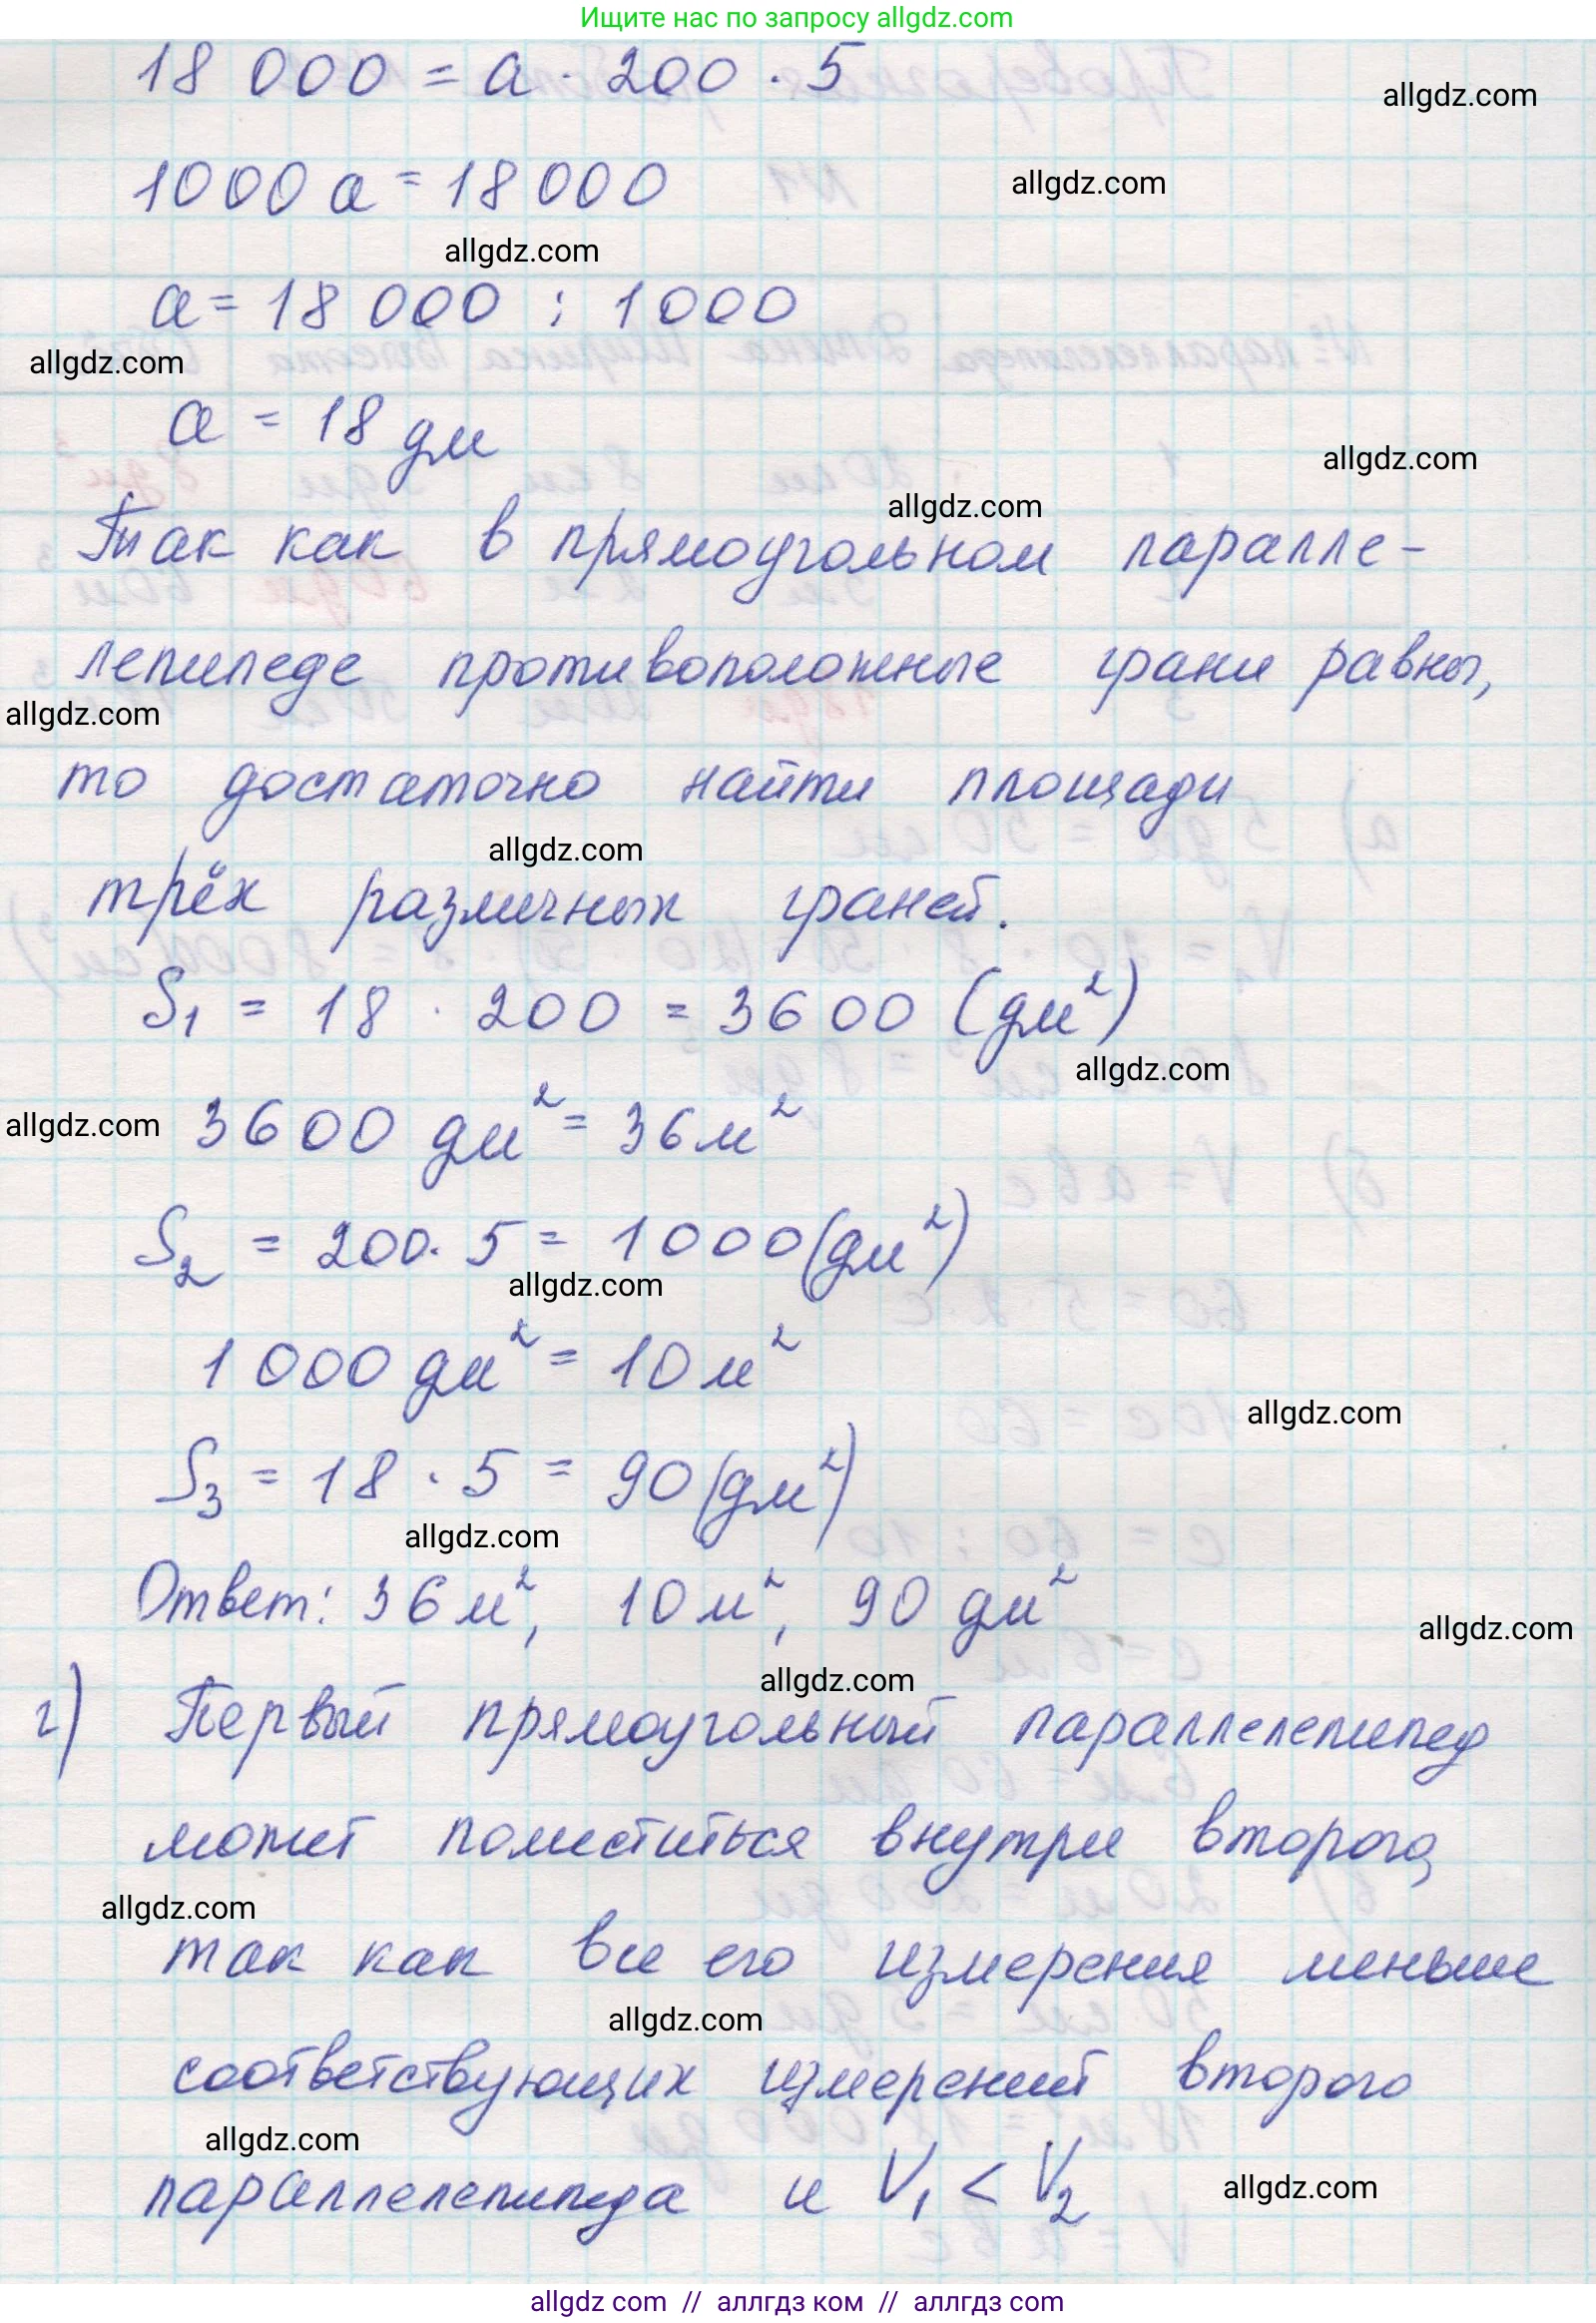 Ищите нас по запросу allgdz.com
18 000 = a · 200 · 5
allgdz.com
1000 a = 18 000
allgdz.com
allgdz.com
a = 18 000 : 1000
allgdz.com
a = 18 дм
allgdz.com
allgdz.com
Так как в прямоугольном паралле-
лепипеде противоположные грани равны,
allgdz.com
то достаточно найти площади
allgdz.com
трёх различных граней.
S₁ = 18 · 200 = 3600 (дм²)
allgdz.com
allgdz.com
3600 дм² = 36 м²
S₂ = 200 · 5 = 1000 (дм²)
allgdz.com
1 000 дм² = 10 м²
allgdz.com
S₃ = 18 · 5 = 90 (дм²)
allgdz.com
Ответ: 36 м², 10 м², 90 дм²
allgdz.com
allgdz.com
г) Первый прямоугольный параллелепипед
может поместиться внутри второго,
allgdz.com
так как все его измерения меньше
allgdz.com
соответствующих измерений второго
allgdz.com
параллелепипеда и V₁ < V₂
allgdz.com
allgdz.com // аллгдз ком // аллгдз.com